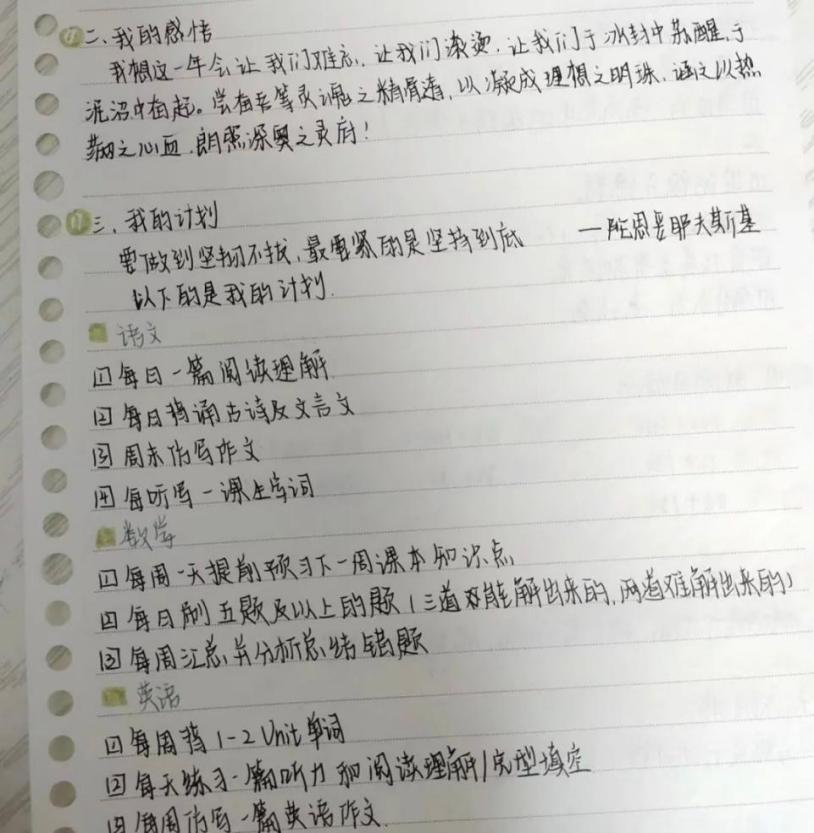 二、我的感悟
我想这一年会让我们难忘,让我们滚烫,让我们于冰封中苏醒,于
泥沼中奋起。尝吾等灵魂之精骨遒,以凝成理想之明珠,涵之以热
之心血,朗照深奥之灵府!
三、我的计划
要做到坚韧不拔,最要紧的是坚持到底 —陀思妥耶夫斯基
以下的是我的计划.
语文
1 每日一篇阅读理解
2 每日背诵古诗及文言文
3 周末仿写作文
4 每听写一课生字词
数学
1 每周一天提前预习下一周课本知识点
2 每日刷五题及以上的题(三道能解出来的,两道难解出来的)
3 每周汇总,并分析总结错题
英语
1 每周背1-2 Unit单词
2 每天练习一篇听力和阅读理解/完型填空
3 每周仿写一篇英语作文